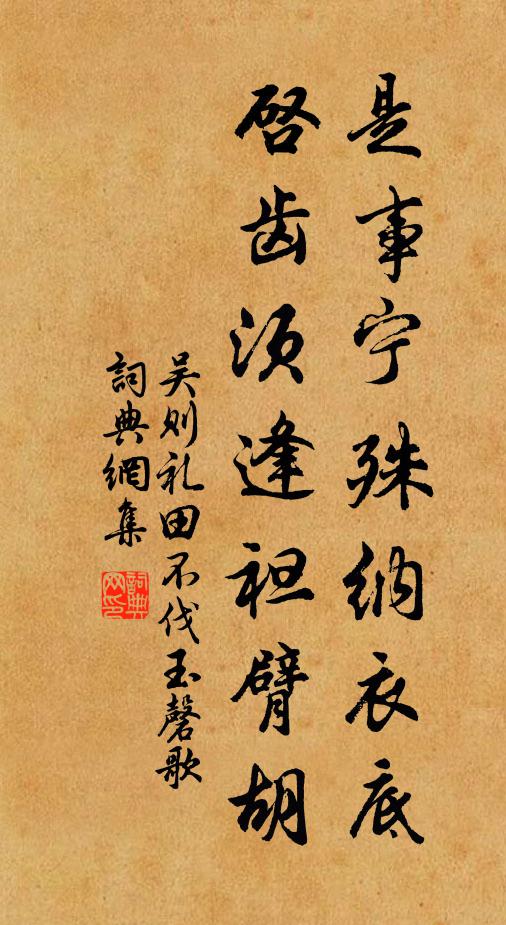 是事宁殊纳衣底
启齿须逢袒臂胡
吴则礼田不伐玉磬歌
詞典網集
詞典网印